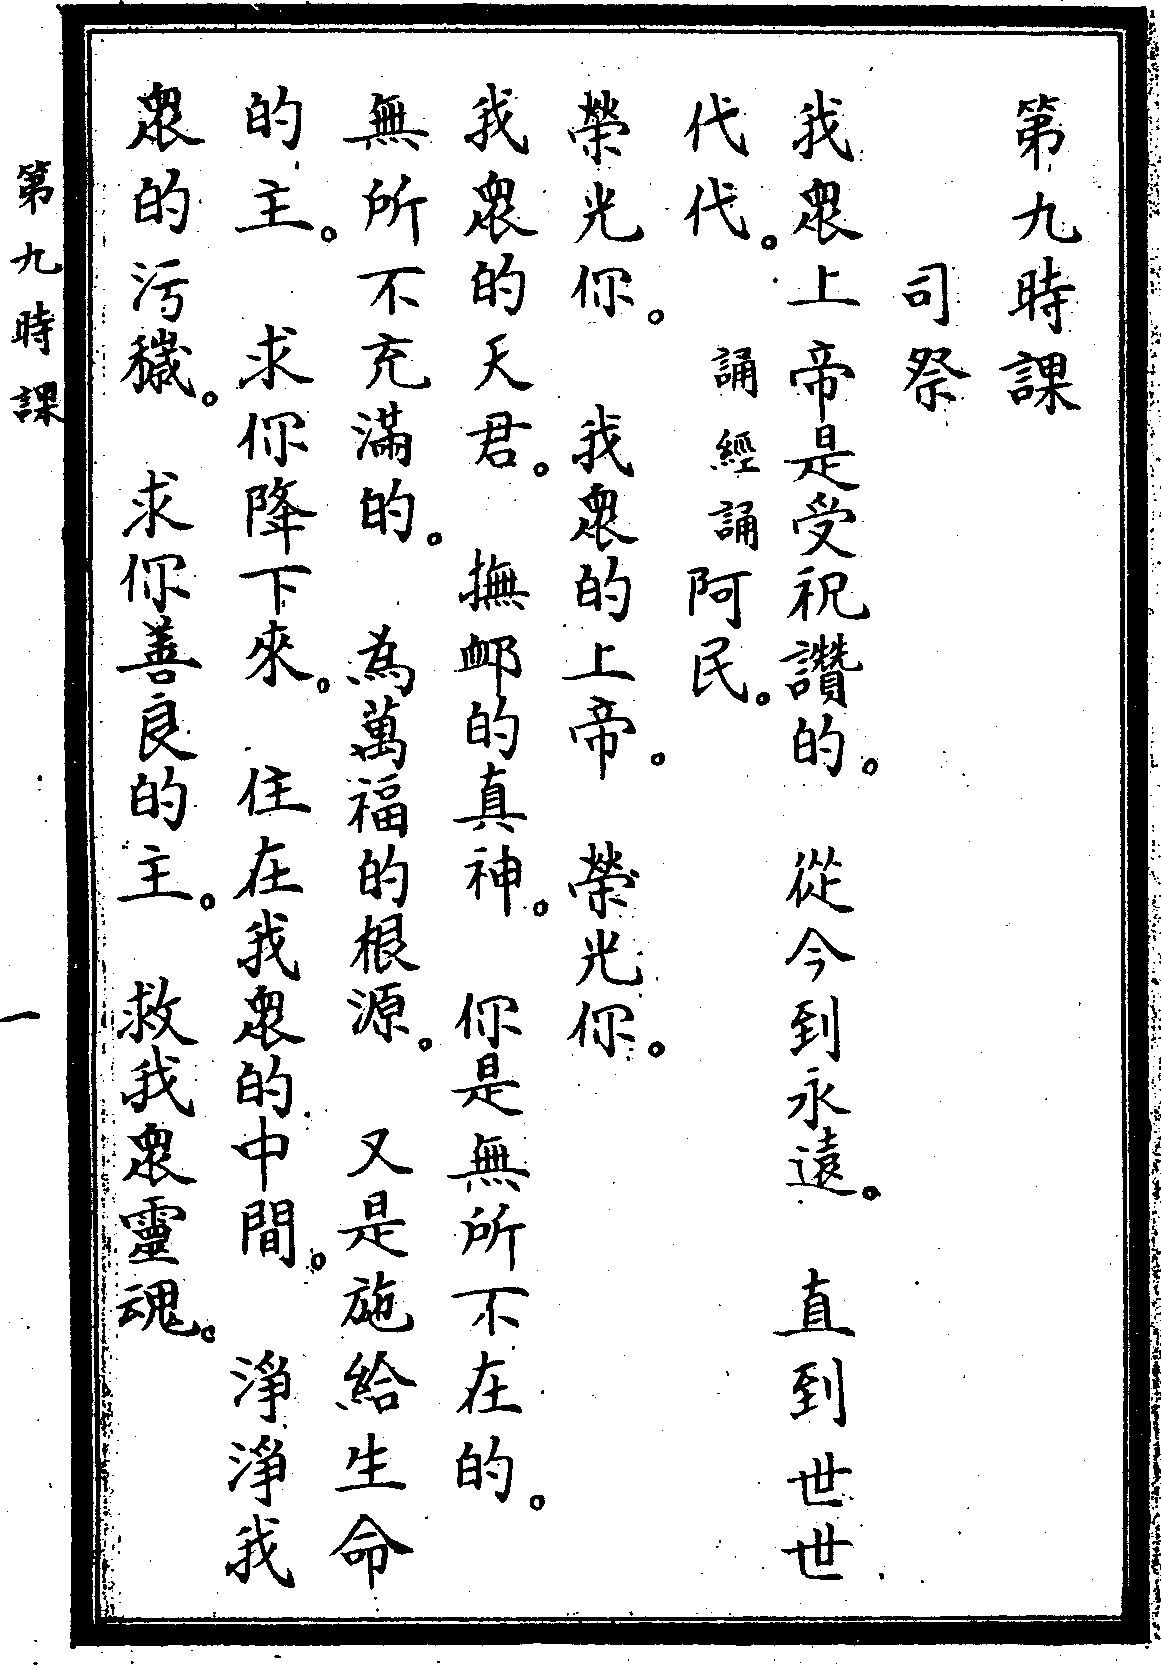 第九時課
司祭
我眾上帝是受祝讚的。 從今到永遠。 直到世世
代代。 誦經誦阿民。
榮光你。 我眾的上帝。 榮光你。
我眾的天君。 撫卹的真神。 你是無所不在的。
無所不充滿的。 為萬福的根源。 又是施給生命
的主。 求你降下來。 住在我眾的中間。 淨淨我
眾的污穢。 求你善良的主。 救我眾靈魂。
第九時課
一